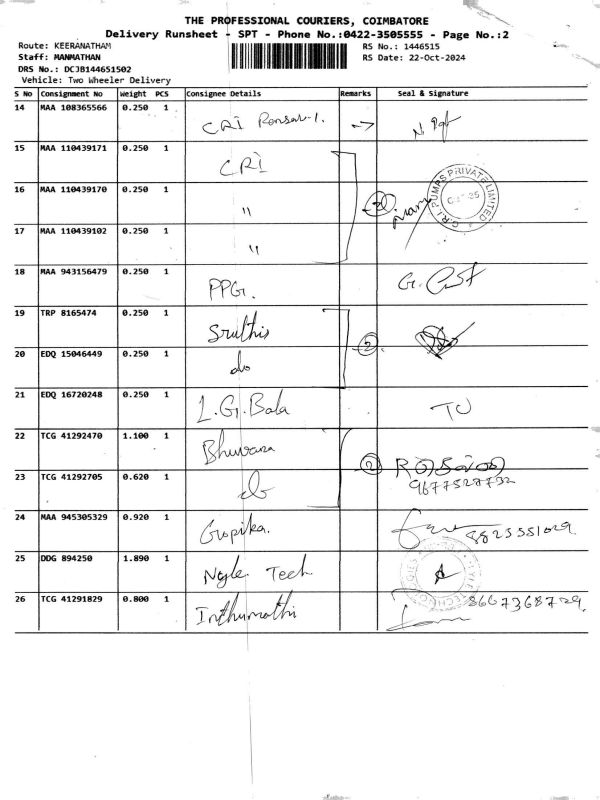 THE PROFESSIONAL COURIERS, COIMBATORE
Delivery Runsheet - SPT - Phone No.:0422-3505555 - Page No.:2
Route: KEERANATHAM
Staff: MANMATHAN
DRS No.: DCJB144651502
Vehicle: Two Wheeler Delivery
RS No.: 1446515
RS Date: 22-Oct-2024
S No Consignment No Weight PCS Consignee Details Remarks Seal & Signature
14 MAA 108365566 0.250 1 CRI
15 MAA 110439171 0.250 1 CRI
16 MAA 110439170 0.250 1 "
C.R.I. PUMPS PRIVATE LIMITED
17 MAA 110439102 0.250 1 "
18 MAA 943156479 0.250 1 PPG.
19 TRP 8165474 0.250 1 Sruthis 2
20 EDQ 15046449 0.250 1 do
21 EDQ 16720248 0.250 1 L.G.Bala
22 TCG 41292470 1.100 1 Bhuvana 2
23 TCG 41292705 0.620 1 do 9677527732
24 MAA 945305329 0.920 1 Gopika. 8825551029
25 DDG 894250 1.890 1 Tech
26 TCG 41291829 0.800 1 Inthumathi 8667368729